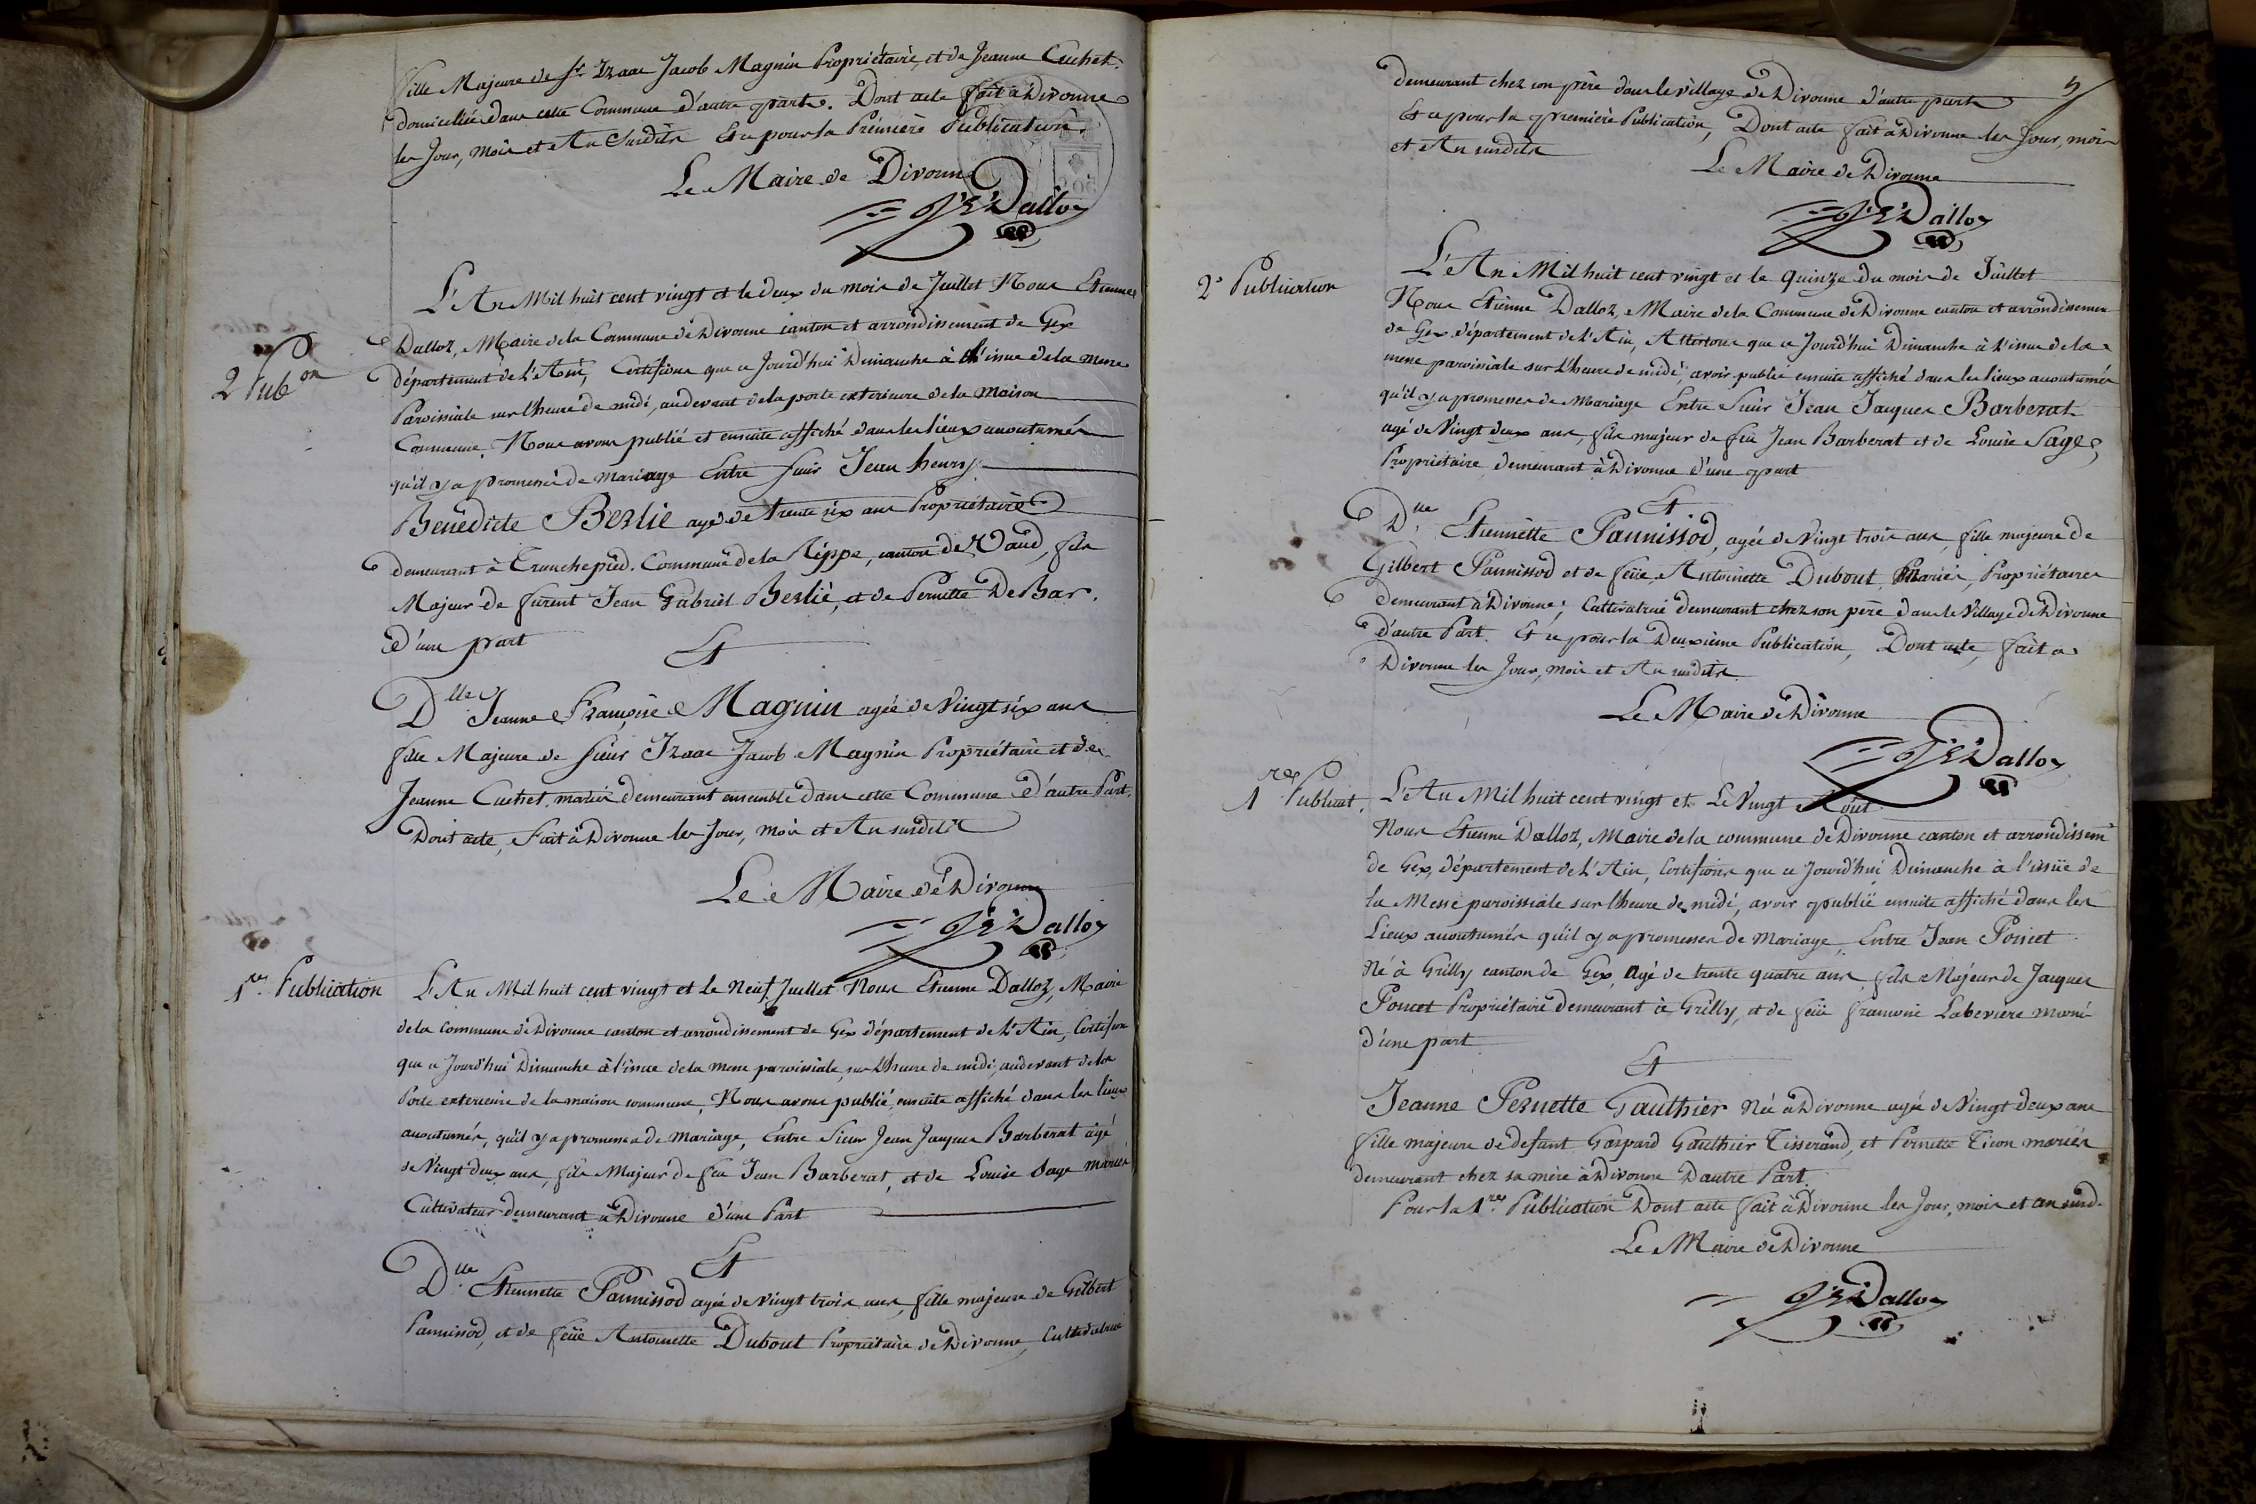 fille Majeure de Sr. Izaac Jacob Magnin Propriétaire, et de Jeanne Cuchet.
domiciliée dans cette Commune d'autre part. Dont acte fait à Divonne
les Jour, mois et An Susdits Et ce pour la Première Publication.
Le Maire de Divonne
J. E. Dalloz
2 Pub.on
L'An Mil huit cent vingt et le deux du mois de Juillet Nous Etienne
Dalloz, Maire de la Commune de Divonne canton et arrondissement de Gex
département de l'Ain, Certifions que ce Jourd'hui Dimanche à l'issue de la messe
Paroissiale sur l'heure de midi, au devant de la porte exterieure de la Maison
Commune, Nous avons publié et ensuite affiché dans les lieux accoutumés
qu'il y a promesse de Mariage Entre Sieur Jean henry
Bénédicte Bezlie agé de trente six ans Propriétaire
demeurant à Tranchepied. Commune de la Rippe, canton de Vaud, fils
Majeur de furent Jean Gabriel Bezlié, et de Pernette De Bar.
d'une part
Et
Dlle Jeanne Françoise Magnin agée de Vingt six ans
fille Majeure de Sieur Izaac Jacob Magnin Propriétaire et de
Jeanne Cuchet, mariés demeurant ensemble dans cette Commune d'autre Part.
Dont acte, Fait à Divonne les Jour, mois et An susdits
Le Maire de Divonne
J. E. Dalloz
1re Publication
L'An Mil huit cent vingt et Le Neuf Juillet Nous Etienne Dalloz, Maire
de la Commune de Divonne canton et arrondissement de Gex département de L'Ain, Certifions
que ce Jourd'hui Dimanche à l'issue de la messe paroissiale, sur l'heure de midi, au devant de la
Porte exterieure de la maison commune, Nous avons publié ensuite affiché dans les lieux
accoutumés, qu'il y a promesse de Mariage, Entre Sieur Jean Jaques Barberat agé
de Vingt deux ans, fils Majeur de feu Jean Barberat, et de Louise Sage mariés
Cultivateur demeurant à Divonne d'une Part
Et
Dlle Etiennette Pannissod agée de vingt trois ans, fille majeure de Gilbert
Pannissod, et de feüe Antoinette Dubout Propriétaire de Divonne, Cultivatrice
demeurant chez son père dans le village de Divonne d'autre part
Et ce pour la première Publication, Dont acte fait à Divonne les Jour, mois
et An susdits
Le Maire de Divonne
J. E. Dalloz
2e Publication
L'An Mil huit cent vingt et le Quinze du mois de Juillet
Nous Etienne Dalloz, Maire de la Commune de Divonne canton et arrondissement
de Gex département de l'Ain, Attestons que ce Jourd'hui Dimanche à l'issue de la
messe paroissiale sur l'heure de midi, avoir publié ensuite affiché dans les lieux accoutumés
qu'il y a promesses de Mariage Entre Sieur Jean Jacques Barberat
agé de Vingt deux ans, fils majeur de feu Jean Barberat et de Louise Sage,
Propriétaire demeurant à Divonne d'une part
Et
Dlle Etiennette Pannissod, agée de Vingt trois ans, fille majeure de
Gilbert Pannissod et de feüe Antoinette Dubout Mariés, Propriétaires
demeurant à Divonne; Cultivatrice demeurant chez son père dans le Village de Divonne
d'autre Part. Et ce pour la Deuxième Publication, Dont acte, fait à
Divonne les Jour, mois et An susdits
Le Maire de Divonne
J. E. Dalloz
1re Publicat.
L'An Mil huit cent vingt et Le Vingt Août
Nous Etienne Dalloz, Maire de la commune de Divonne canton et arrondissemt
de Gex, département de l'Ain, Certifions que ce Jourd'hui Dimanche à l'issüe de
la Messe paroissiale sur l'heure de midi, avoir publié ensuite affiché dans les
Lieux accoutumés qu'il y a promesses de Mariage, Entre Jean Poncet
Né à Grilly canton de Gex, agé de trente quatre ans, fils Majeur de Jaques
Poncet Propriétaire demeurant à Grilly, et de feüe françoise Laberiere mariés
d'une part
Et
Jeanne Pernette Gauthier Née à Divonne agée de Vingt deux ans
fille majeure de defunt Gaspard Gauthier Tisserand, et Pernette Ticon mariés
demeurant chez sa mère à Divonne D'autre Part.
Pour la 1re Publication Dont acte fait à Divonne les Jour, mois et an susd.
Le Maire de Divonne
J. E. Dalloz